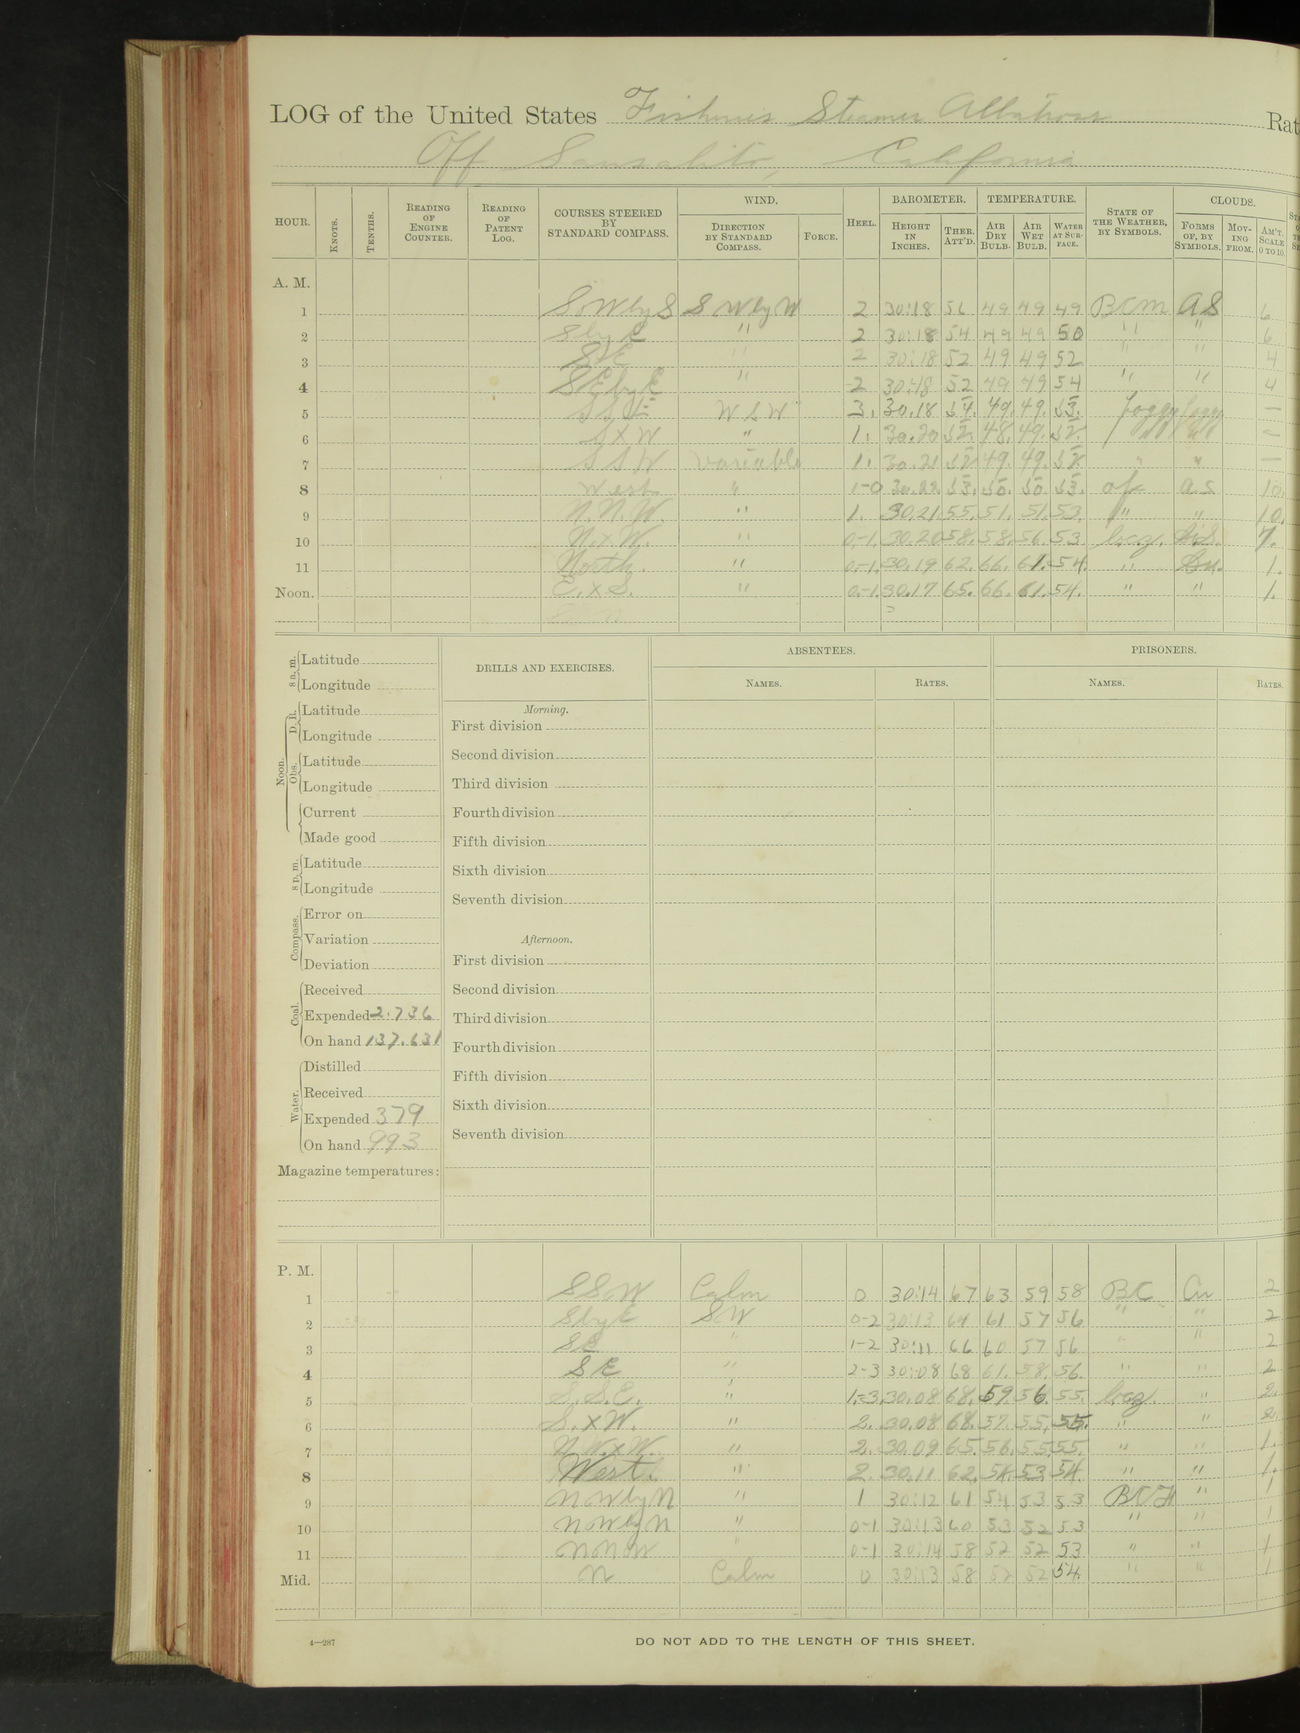 LOG of the United States Fisheries Steamer Albatross Rat
Off Sausalito, California
HOUR. KNOTS. TENTHS. READING OF ENGINE COUNTER. READING OF PATENT LOG. COURSES STEERED BY STANDARD COMPASS. WIND. DIRECTION BY STANDARD COMPASS. FORCE. HEEL. BAROMETER. HEIGHT IN INCHES. THER. ATT'D. TEMPERATURE. AIR DRY BULB. AIR WET BULB. WATER AT SURFACE. STATE OF THE WEATHER, BY SYMBOLS. CLOUDS. FORMS OF, BY SYMBOLS. MOVING FROM. AM'T. SCALE 0 TO 10.
A. M.
1 SoWbyS SWbyW 2 30:18 56 49 49 49 BCM AS 6
2 SbyE " 2 30:18 54 49 49 50 " " 6
3 SE " 2 30:18 52 49 49 52 " " 4
4 SEbyE " 2 30:18 52 49 49 54 " " 4
5 SSE WSW 3. 30.18 54. 49. 49. 53. foggy foggy —
6 SXW " 1. 30.20 52. 48. 49. 52. —
7 SSW Variable 1. 30.21 52 49. 49. 52 " " —
8 West " 1-0 30.22. 53. 50. 50. 53. of a.s 10.
9 N.N.W. " 1. 30.21. 55. 51. 51. 53. " " 10.
10 N.xW. " 0-1. 30.20 58. 58. 56. 53 b.c.z. 7.
11 North. " 0-1. 30.19 62. 66. 61. 54. " Cu. 1.
Noon. E.xS. " 0-1. 30.17 65. 66. 61. 54. " " 1.
8 a.m. Latitude
Longitude
Noon. D. R. Latitude
Longitude
Obs. Latitude
Longitude
Current
Made good
8 p.m. Latitude
Longitude
Compass. Error on
Variation
Deviation
Coal. Received
Expended 2.736
On hand 137.631
Water. Distilled
Received
Expended 379
On hand 993
Magazine temperatures:
DRILLS AND EXERCISES.
Morning.
First division
Second division
Third division
Fourth division
Fifth division
Sixth division
Seventh division
Afternoon.
First division
Second division
Third division
Fourth division
Fifth division
Sixth division
Seventh division
ABSENTEES.
NAMES. RATES.
PRISONERS.
NAMES. RATES.
P. M.
1 SSW Calm 0 30:14 67 63 59 58 BC Cu 2
2 SbyE SW 0-2 30:13 64 61 57 56 " " 2
3 SE " 1-2 30:11 66 60 57 56 " " 2
4 SE " 2-3 30:08 68 61. 58. 56. " " 2
5 S.S.E. " 1-3. 30.08 68. 59. 56. 55. b.c.z. " 2.
6 S.xW. " 2. 30.08 68. 57. 55. 55. " " 2.
7 N.W.xW. " 2. 30.09 65. 56. 55. 55. " " 1.
8 West. " 2. 30.11 62. 54. 53. 54. " " 1.
9 NWbyN " 1 30:12 61 54 53 53 " 1
10 NWbyN " 0-1 30:13 60 53 52 53 " " 1
11 NNW " 0-1 30:14 58 52 52 53 " " 1
Mid. N Calm 0 30:13 58 52 52 54. " " 1
4—287
DO NOT ADD TO THE LENGTH OF THIS SHEET.